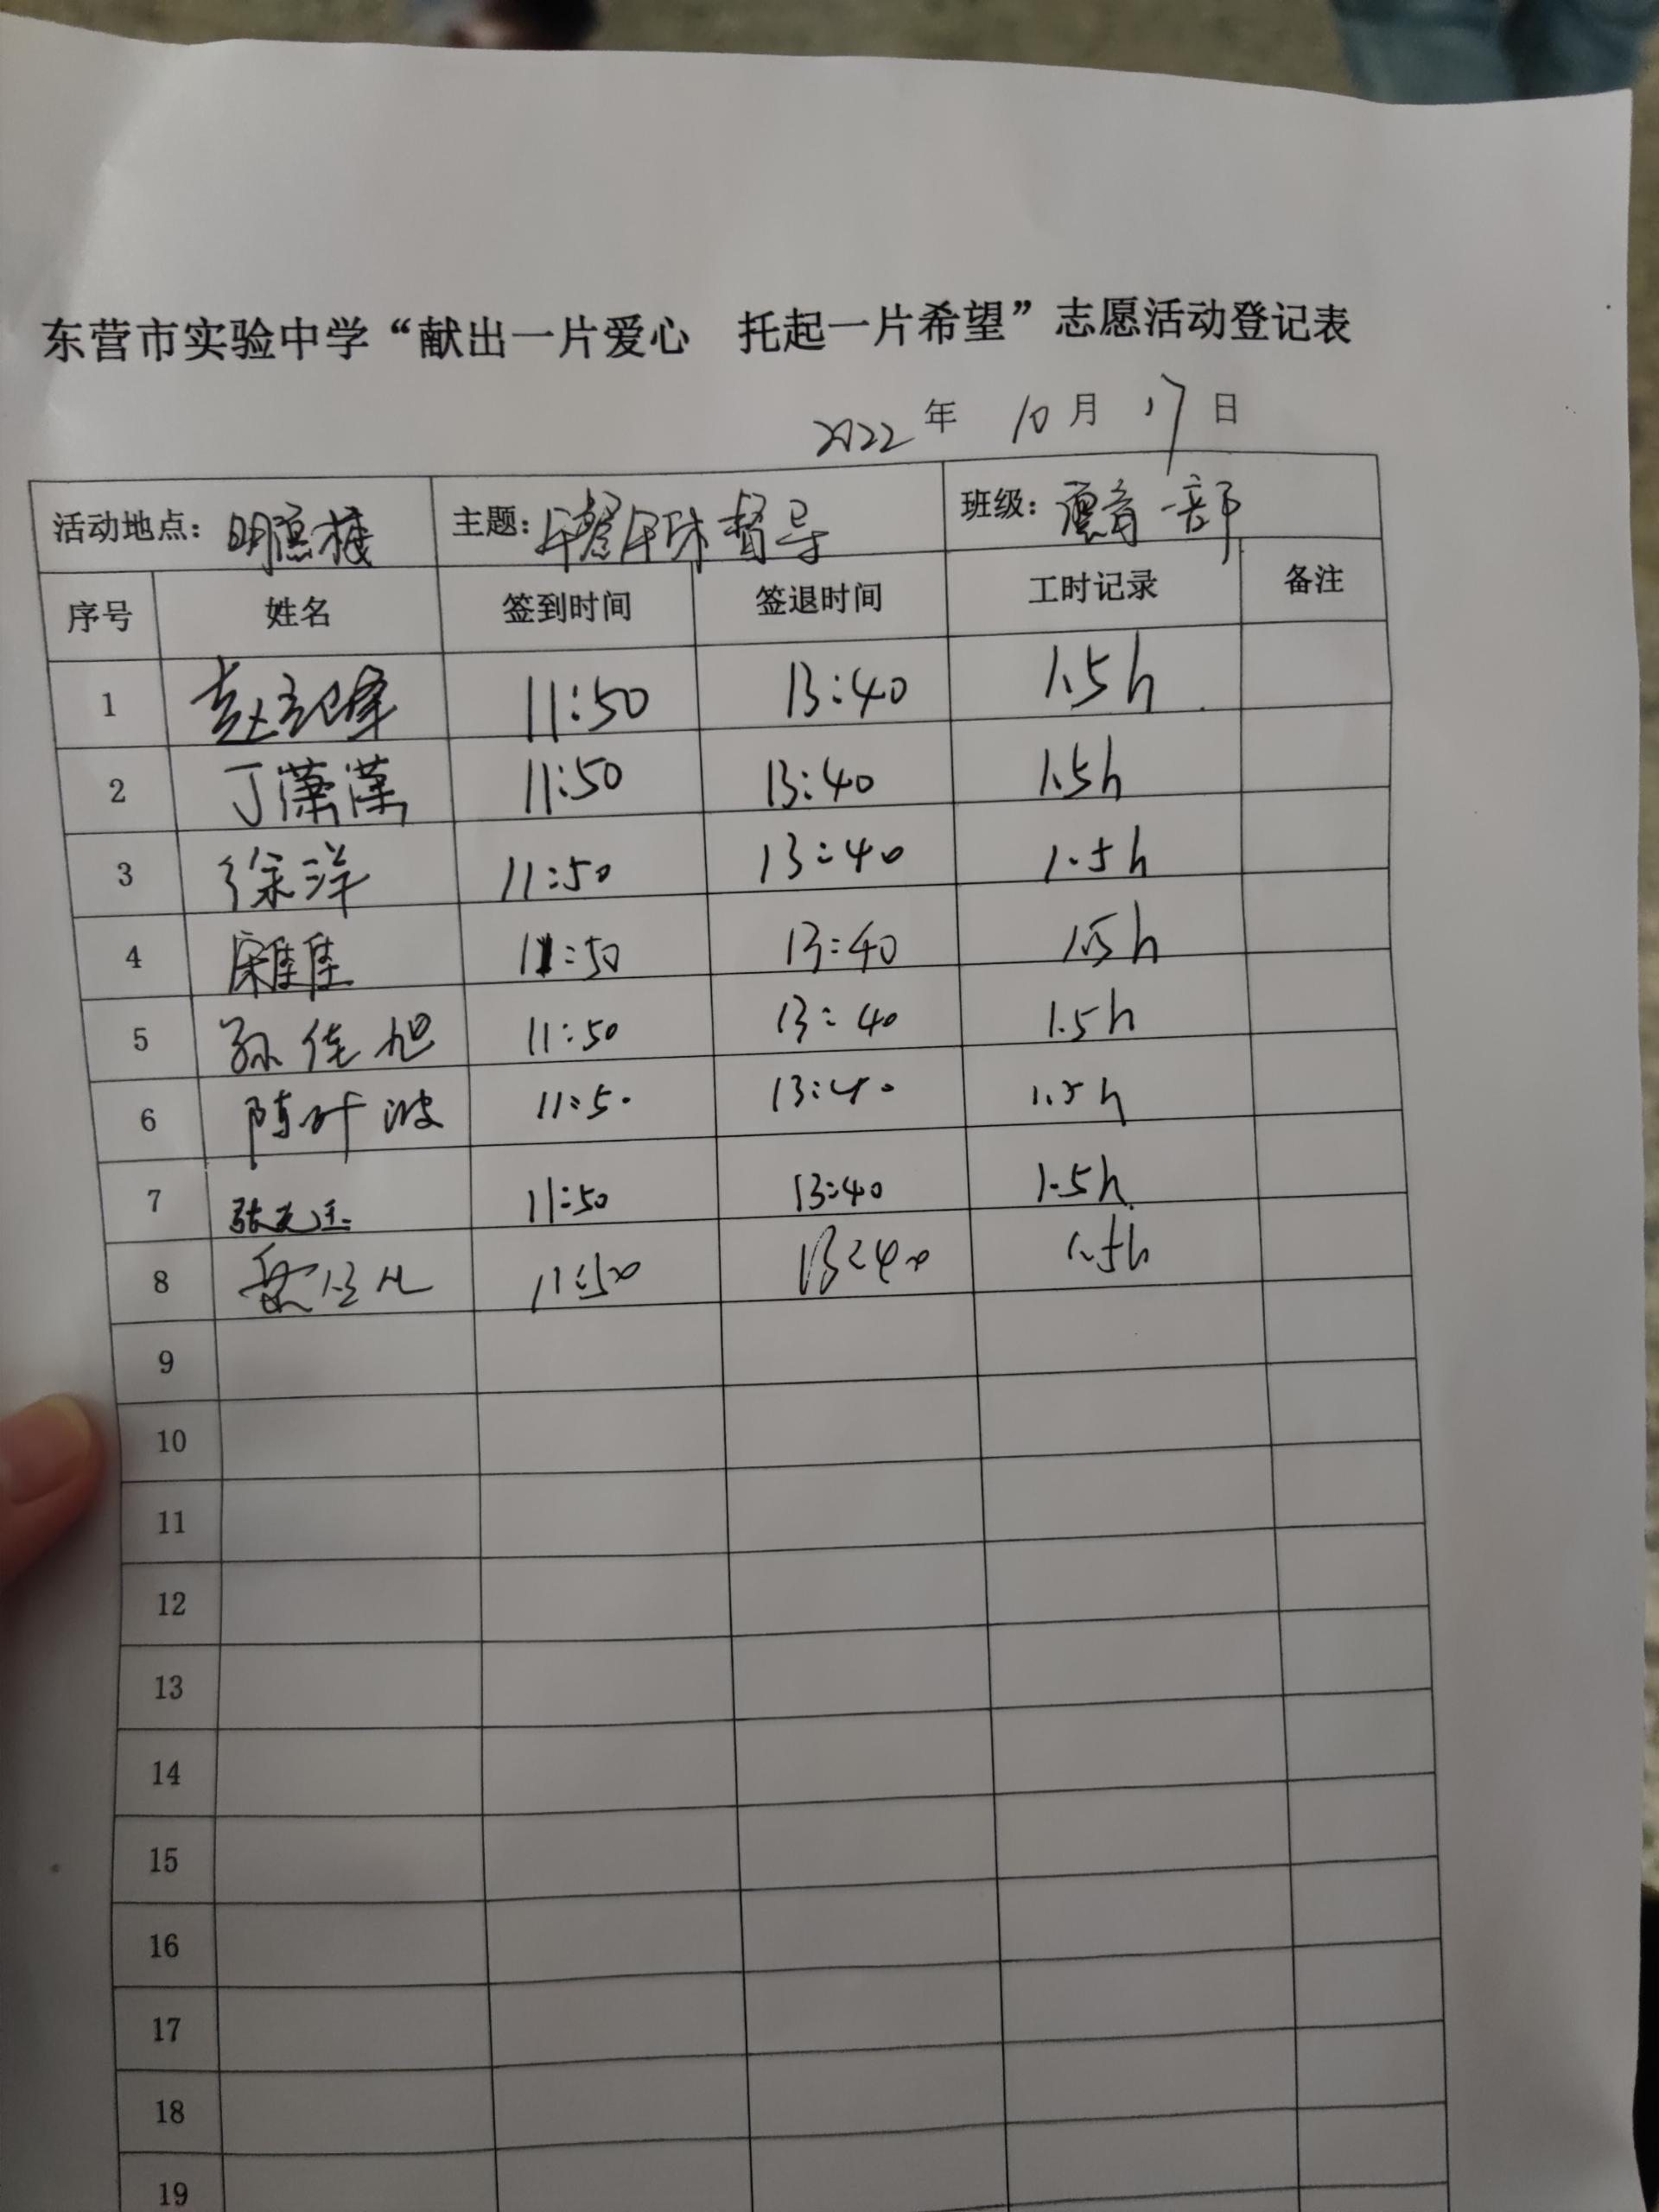 东营市实验中学“献出一片爱心 托起一片希望”志愿活动登记表
2022 年 10 月 17 日
活动地点：明德楼 主题：午餐午休督导 班级：德育一部
序号 姓名 签到时间 签退时间 工时记录 备注
1 赵 11:50 13:40 1.5h
2 丁潇潇 11:50 13:40 1.5h
3 徐洋 11:50 13:40 1.5h
4 11:50 13:40 1.5h
5 孙佳旭 11:50 13:40 1.5h
6 陈叶波 11:50 13:40 1.5h
7 张 11:50 13:40 1.5h
8 11:50 13:40 1.5h
9
10
11
12
13
14
15
16
17
18
19